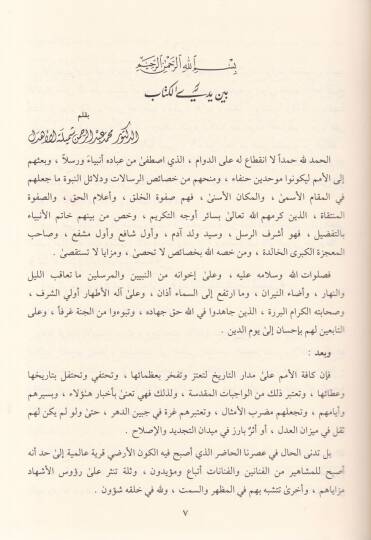 بسم الله الرحمن الرحيم
بين يدي الكتاب
بقلم
الدكتور محمد عبد الرحمن شميلة الأهدل
الحمد لله حمداً لا انقطاع له على الدوام ، الذي اصطفىٰ من عباده أنبياءً ورسلاً ، وبعثهم
إلى الأمم ليكونوا موحدين حنفاء ، ومنحهم من خصائص الرسالات ودلائل النبوة ما جعلهم
في المقام الأسمىٰ ، والمكان الأسنىٰ ، فهم صفوة الخلق ، وأعلام الحق ، والصفوة
المنتقاة ، الذين كرمهم الله تعالىٰ بسائر أوجه التكريم ، وخص من بينهم خاتم الأنبياء
بالتفضيل ، فهو أشرف الرسل ، وسيد ولد آدم ، وأول شافع وأول مشفع ، وصاحب
المعجزة الكبرى الخالدة ، ومن خصه الله بخصائص لا تحصىٰ ، ومزايا لا تستقصىٰ .
فصلوات الله وسلامه عليه ، وعلىٰ إخوانه من النبيين والمرسلين ما تعاقب الليل
والنهار ، وأضاء النيران ، وما ارتفع إلى السماء أذان ، وعلىٰ آله الأطهار أولي الشرف ،
وصحابته الكرام البررة ، الذين جاهدوا في الله حق جهاده ، وتبوءوا من الجنة غرفاً ، وعلى
التابعين لهم بإحسان إلىٰ يوم الدين .
وبعد :
فإن كافة الأمم علىٰ مدار التاريخ لتعتز وتفخر بعظمائها ، وتحتفي وتحتفل بتاريخها
وعطائها ، وتعتبر ذلك من الواجبات المقدسة ، ولذلك فهي تعنىٰ بأخبار هؤلاء ، وبسيرهم
وأيامهم ، وتجعلهم مضرب الأمثال ، وتعتبرهم غرة في جبين الدهر ، حتىٰ ولو لم يكن لهم
ثقل في ميزان العدل ، أو أثرٌ بارز في ميدان التجديد والإصلاح .
بل تدنى الحال في عصرنا الحاضر الذي أصبح فيه الكون الأرضي قرية عالمية إلىٰ حد أنه
أصبح للمشاهير من الفنانين والفنانات أتباع ومؤيدون ، وثلة تنثر علىٰ رؤوس الأشهاد
مزاياهم ، وأخرىٰ تتشبه بهم في المظهر والسمت ، ولله في خلقه شؤون .
٧